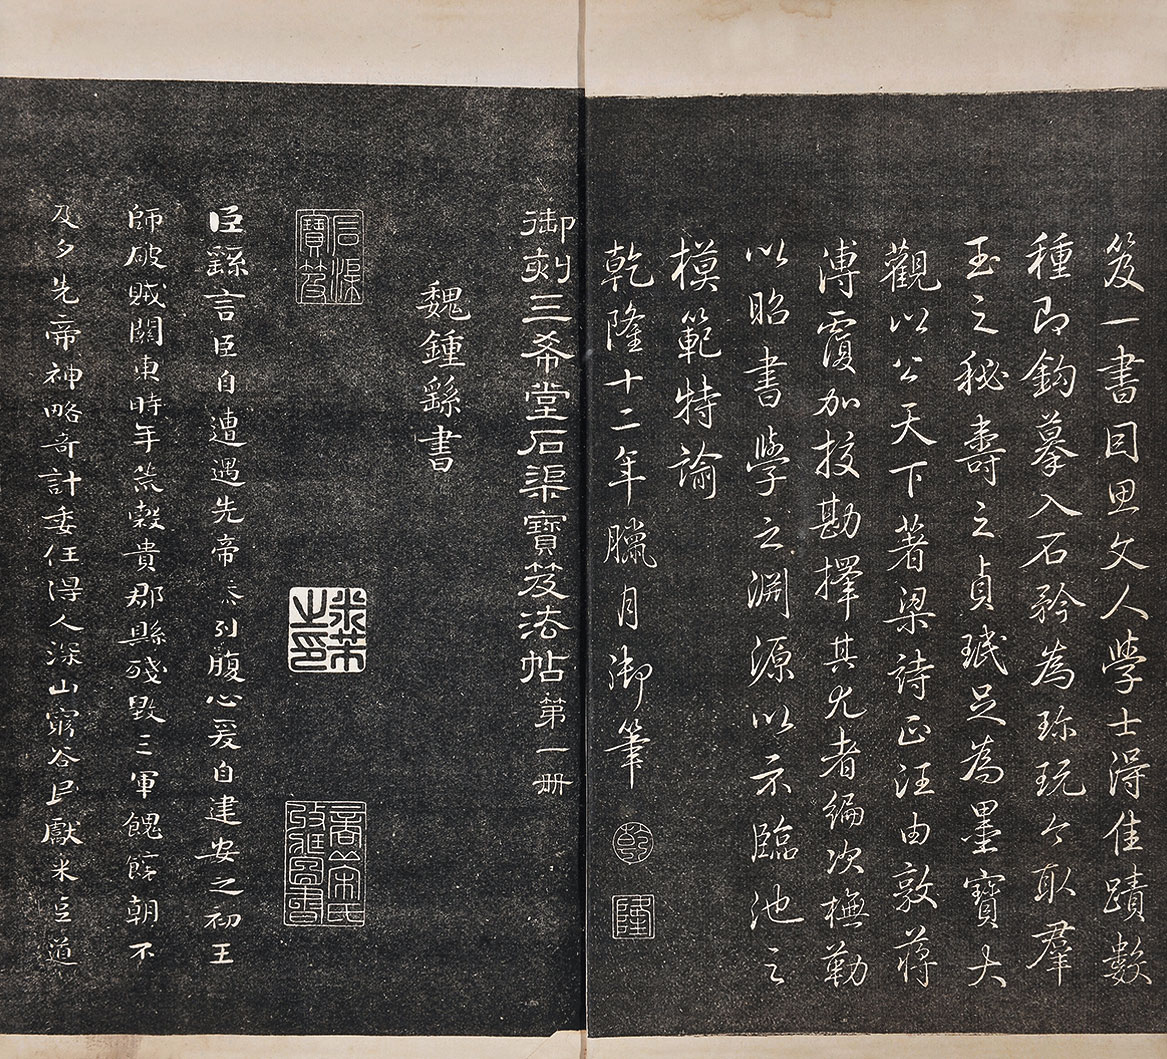 笈一書因思文人學士得佳蹟數
種即鈎摹入石矜為珎玩今取羣
玉之秘壽之貞珉足為墨寶大
觀以公天下著梁詩正汪由敦蔣
溥覆加挍勘擇其尤者編次橅勒
以昭書學之淵源以示臨池之
模範特諭
乾隆十二年臘月御筆
乾
隆
御刻三希堂石渠寶笈法帖第一冊
魏鍾繇書
石渠寶笈
米芾之印
臣繇言臣自遭遇先帝忝列腹心爰自建安之初王
師破賊關東時年荒穀貴郡縣殘毀三軍餽饟朝不
及夕先帝神略奇計委任得人深山窮谷民獻米豆道